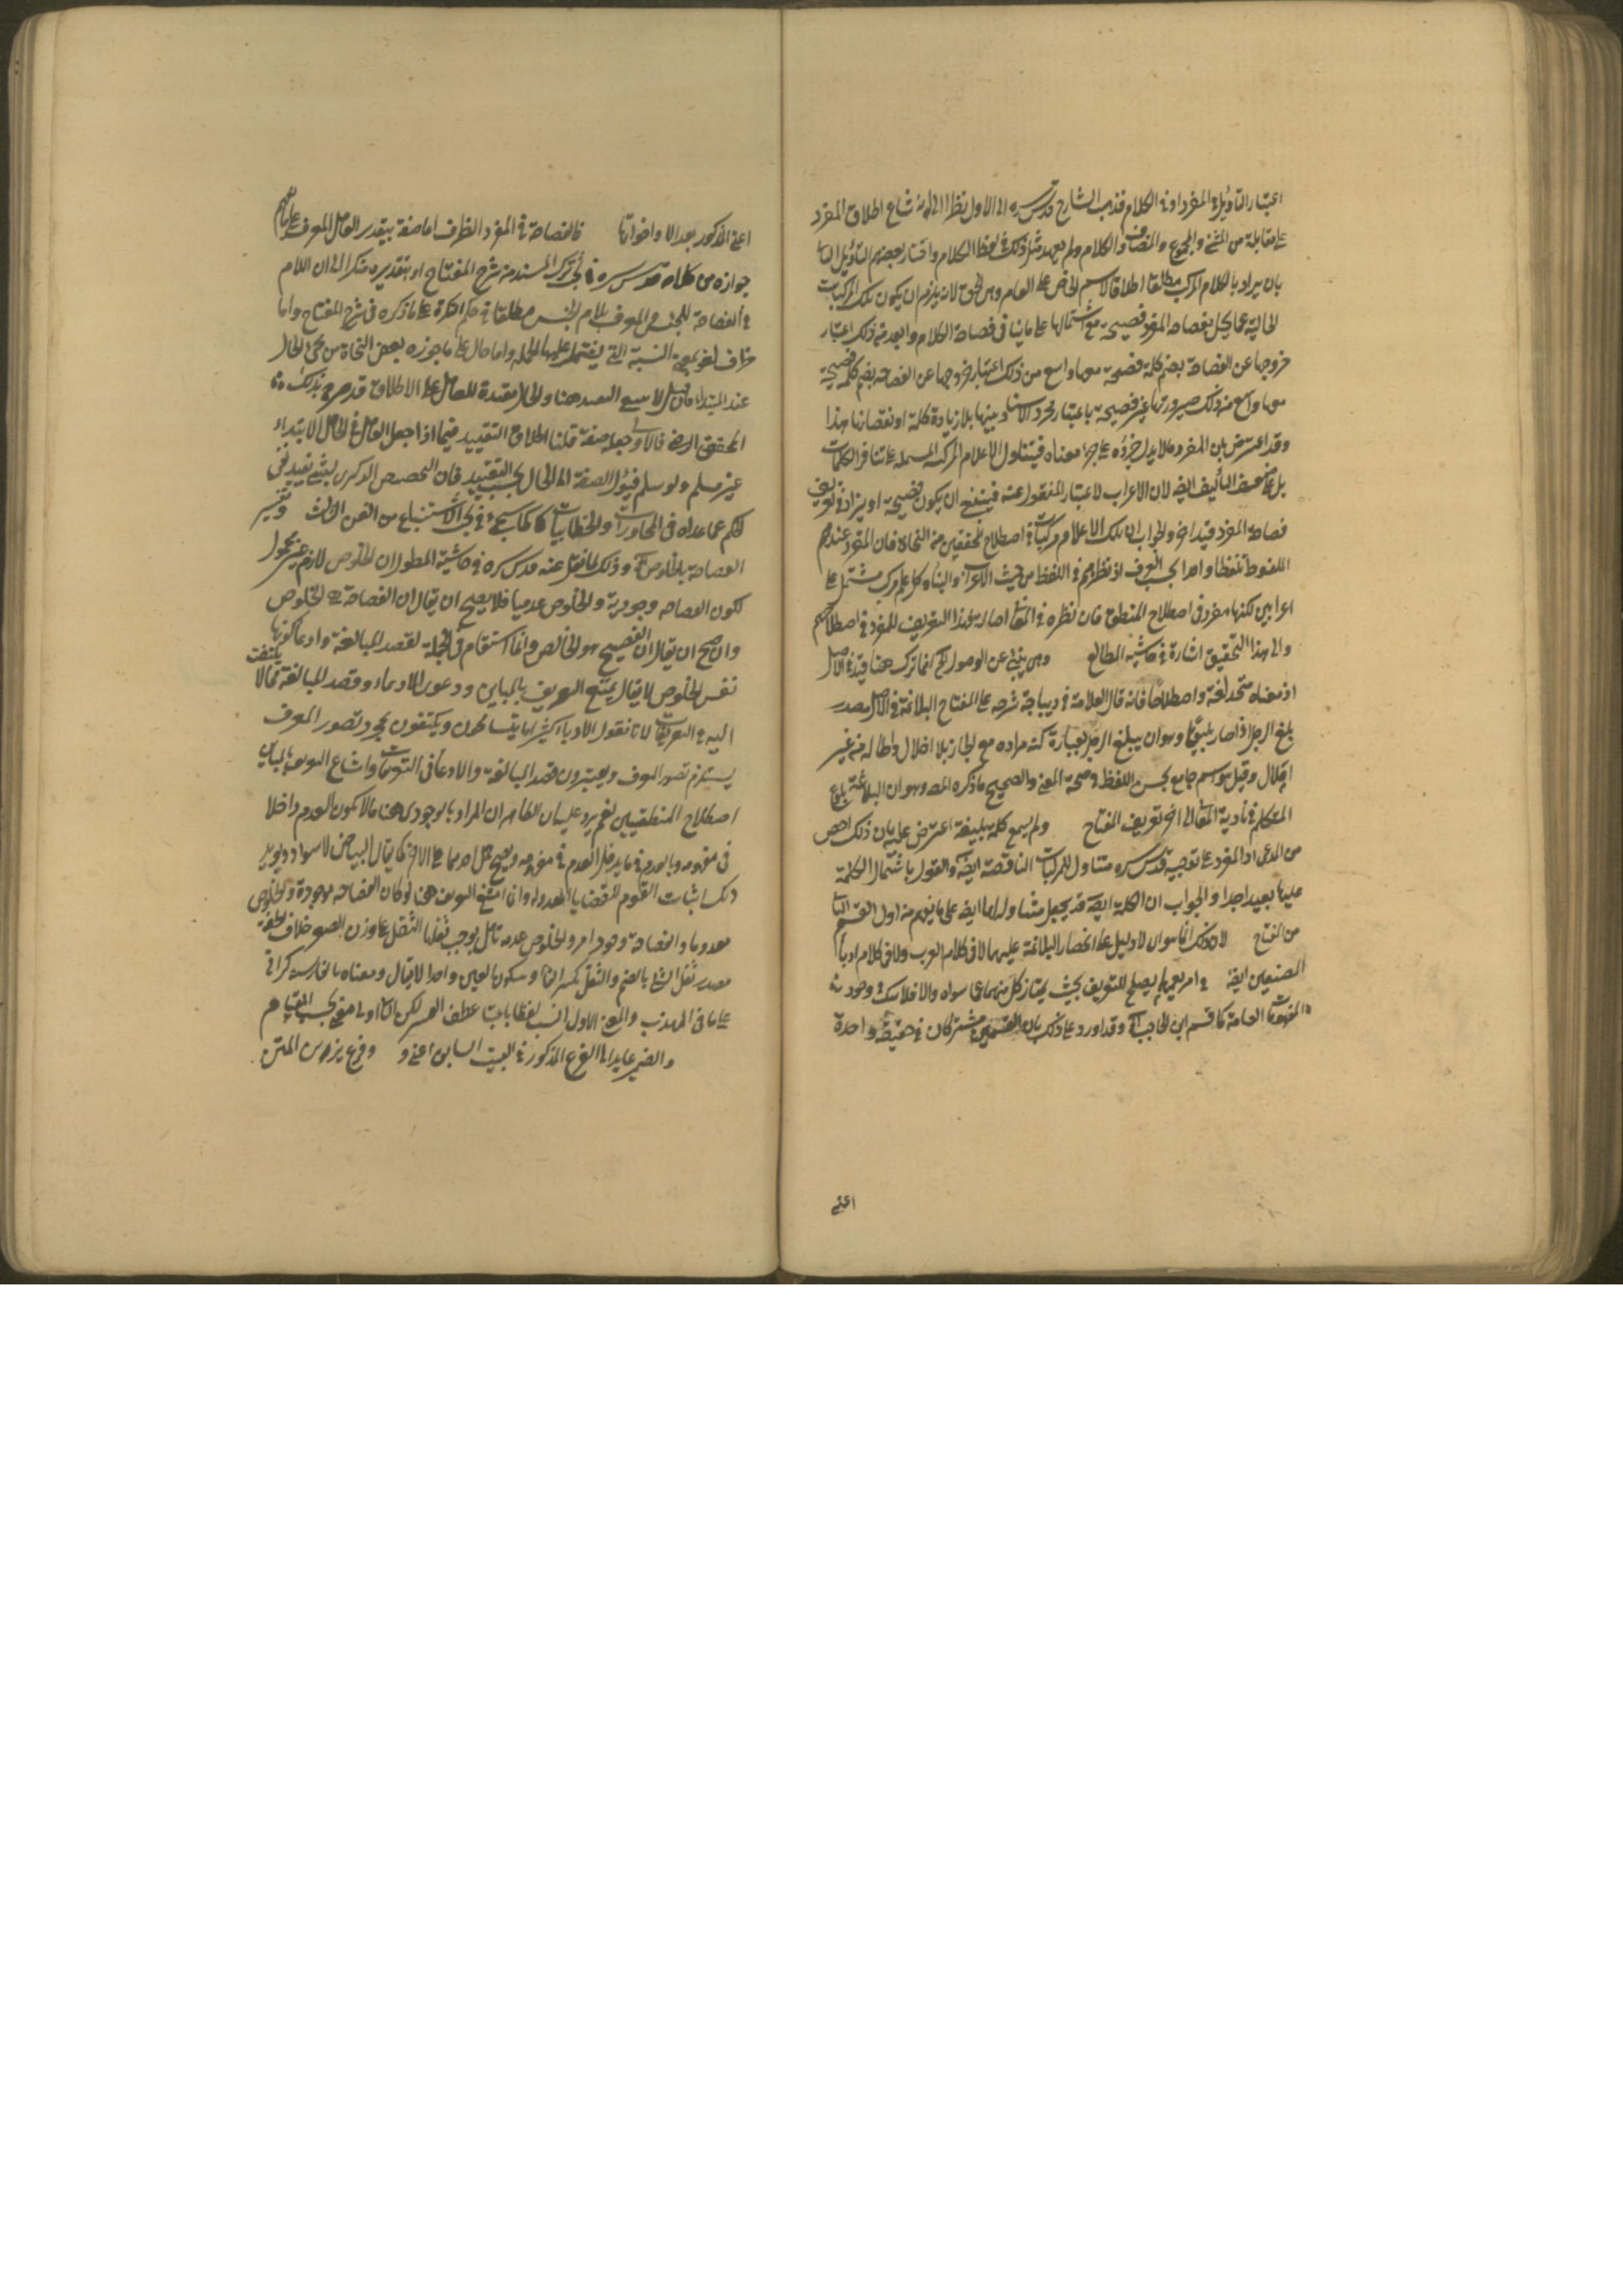 اعتبار التأويل في المفرد او في الكلام فذهب الشارح قدس سره الى الاول نظرا الى انه شاع اطلاق المفرد
على مقابلة من المثنى والمجموع والمضاف والكلام ولم يعهد مثل ذلك في لفظ الكلام واختار بعضهم التأويل الثاني
بان يراد بالكلام المركب مطلقا اطلاقا لاسم الخاص على العام وهى الحق لانه يلزم ان يكون تلك المركبات
الخالية عما يخل بفصاحة المفرد فصيحة مع اشتمالها على ما ينافى فصاحة الكلام وابعد من ذلك اعتبار
خروجها عن الفصاحة بضم كلمة فصيحة معها واسع من ذلك اعتبار خروجها عن الفصاحة بضم كلمة فصيحة
معها واسع من ذلك صيرورتها غير فصيحة باعتبار مجرد الاسناد بينها بلا زيادة كلمة او نقصانها هذا
وقد اعترض بان المفرد ما لا يدل جزؤه على جزء معناه فيتناول الاعلام المركبة المشتملة على تنافر الكلمات
بل على ضعف التأليف ايضا لان الاعراب لاعتبار المنقول عنه فينبغي ان يكون فصيحة او يزاد في تعريف
فصاحة المفرد قيد اخر والجواب ان تلك الاعلام مركبات في اصطلاح المحققين من النحاة فان المفرد عندهم
الملفوظ تلفظا واحدا بحسب العرف اذ نظرهم في اللفظ من حيث الاعراب والبناء وكل علم مركب مشتمل على
اعرابين لكنها مفرد في اصطلاح المنطق فان نظره في المعاني اصالة وهذا التعريف للمفرد في اصطلاحهم
والى هذا التحقيق اشارة في حاشية المطالع وهى ينبئ عن الوصول الخ انما ترك هنا قيد في الاصل
اذ معناه متحد لغة واصطلاحا فانه قال العلامة في ديباجة شرحه على المفتاح البلاغة في الاصل مصدر
بلغ الرجل اذا صار بليغا وهو ان يبلغ الرجل بعبارة كنه مراده مع ايجاز بلا اخلال واطالة من غير
املال وقيل هو اسم جامع لحسن اللفظ وصحة المعنى والصحيح ما ذكره المص وهو ان البلاغة بلوغ
المتكلم في تأدية المعانى الى اخر تعريف المفتاح ولم يسمع كلمة بليغة اعترض عليه بان ذلك اخص
من المدعى اذ المفرد على تفسيره قدس سره متناول للمركبات الناقصة ايضا والقول باشتمال الكلمة
عليها بعيد جدا والجواب ان الكلمة ايضا قد يجعل متناولة لها ايضا على ما يفهم من اول القسم الثالث
من المفتاح لان ذلك انما هو ان لا دليل على انحصار البلاغة عليهما لا في كلام العرب ولا في كلام ادباء
الصنعين ايضا في امر يعمهما يصلح للتعريف بحيث يمتاز كل منهما عما سواه والا فلا شك في وجود
المفهومات العامة كما قسم ابن الحاجب الخ وقد اورد على ذلك بان القسمين مشتركان في حقيقة واحدة
اعنى
اعنى المذكور بعد الا واخواتها فالفصاحة في المفرد الظرف اما صفة بتقدير العامل المعرف على ما يفهم
جوازه من كلامه قدس سره في بحث ترك المسند من شرح المفتاح او بتقديره منكرا الى ان اللام
في الفصاحة للجنس والمعرف بلام الجنس مطلقا في حكم النكرة على ما ذكره في شرح المفتاح واما
ظرف لغو لمعنى النسبة التى يشتمل عليها الجملة واما حال على ما جوزه بعض النحاة من مجئ الحال
عند المبتدا فان قيل لا معنى للتقييد هنا والحال مقيدة للعامل على الاطلاق قد صرح بذلك
المحقق الرضى فالاولى جعله صفة قلنا اطلاق التقييد فيما اذا جعل العامل في الحال الابتداء
غير مسلم ولو سلم فيؤل الصفة الى الحال بحسب التقييد فان التخصيص الذكرى بشئ يفيد نفى
الحكم عما عداه فى المحاورات والخطابيات كما سيجئ في بحث الاستتباع من الفن الثالث وتفسير
الفصاحة بالخلوص الخ وذلك لما نقل عنه قدس سره في حاشية المطول ان الخلوص لازم غير محمول
لكون الفصاحة وجودية والخلوص عدميا فلا يصح ان يقال ان الفصاحة هى الخلوص
وان صح ان يقال ان الفصيح هو الخالص وانما استقام في الجملة لقصد المبالغة وادعاء كونها
نفس الخلوص لا يقال يمتنع التعريف بالمباين ودعوى الادعاء وقصد المبالغة مما لا يلتفت
اليه في التعريفات لانا نقول الادباء كثيرا ما يتساهلون ويكتفون بمجرد تصور المعرف
يستلزم تصور المعرف ويعتبرون قصد المبالغة والادعاء فى التعريفات وامتناع التعريف بالمباين
اصطلاح المنطقيين نعم يرد عليه ان الظاهر ان المراد بالوجودى هنا ما لا يكون العدم داخلا
فى مفهومه وبالعدمى ما يدخل العدم في مفهومه ويصح حمل احدهما على الاخر كما يقال البياض لا سواد ويؤيد
ذلك اثبات القوم للقضايا المعدولة وانما امتنع التعريف هنا لو كان الفصاحة موجودة والخلوص
معدوما والفصاحة وجود امر والخلوص عدمه تأمل يوجب ثقلها الثقل على وزن الصغر خلاف الخفة
مصدر ثقل الشئ بالضم والثقل بكسر الثاء وسكون العين واحد الاثقال ومعناه بالفارسية كرانى
على ما فى المهذب والمعنى الاول انسب لفظا بابت عطف العسر لكن الثانى اولى معنى بحسب المقام
والضمير عايد الى الفرع المذكور في البيت السابق اعنى و وفرع يزين المتن